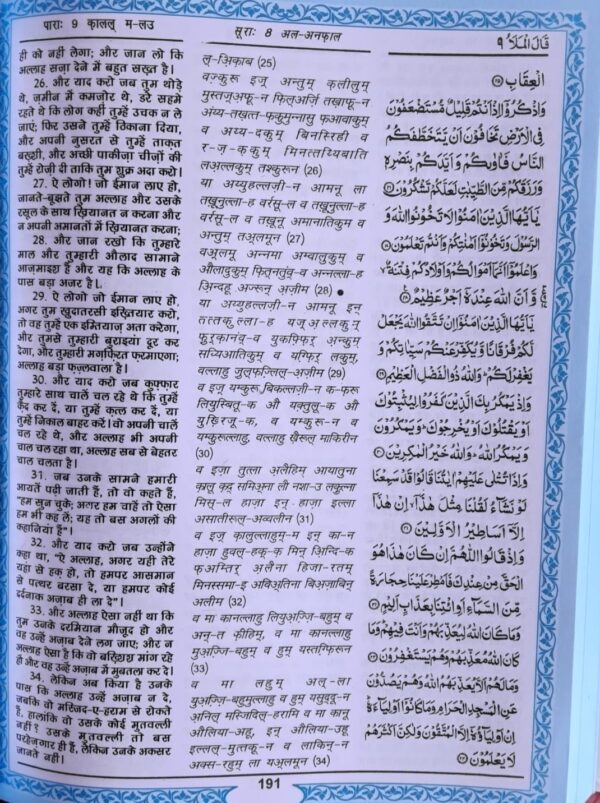 पाराः 9 क़ालल् म-लउ
सूराः 8 अल-अनफ़ाल
قَالَ الْمَلَاُ ٩
ही को नहीं लेगा; और जान लो कि
अल्लाह सज़ा देने में बहुत सख़्त है।
26. और याद करो जब तुम थोड़े
थे, ज़मीन में कमज़ोर थे, डरे सहमे
रहते थे कि लोग कहीं तुम्हें उचक न ले
जाएं; फिर उसने तुम्हें ठिकाना दिया,
और अपनी नुसरत से तुम्हें ताक़त
बख़्शी, और अच्छी पाकीज़ा चीज़ों की
तुम्हें रोज़ी दी ताकि तुम शुक्र अदा करो।
27. ऐ लोगो! जो ईमान लाए हो,
जानते-बूझते तुम अल्लाह और उसके
रसूल के साथ ख़ियानत न करना और
न अपनी अमानतों में ख़ियानत करना;
28. और जान रखो कि तुम्हारे
माल और तुम्हारी औलाद सामाने
आज़माइश हैं और यह कि अल्लाह के
पास बड़ा अजर है।
29. ऐ लोगो जो ईमान लाए हो,
अगर तुम ख़ुदातरसी इख़्तियार करो,
तो वह तुम्हें एक इम्तियाज़ अता करेगा,
और तुमसे तुम्हारी बुराइयां दूर कर
देगा, और तुम्हारी मग़फ़िरत फ़रमाएगा;
अल्लाह बड़ा फ़ज़्लवाला है।
30. और याद करो जब कुफ़्फ़ार
तुम्हारे साथ चालें चल रहे थे कि तुम्हें
क़ैद कर दें, या तुम्हें क़त्ल कर दें, या
तुम्हें निकाल बाहर करें। वो अपनी चालें
चल रहे थे, और अल्लाह भी अपनी
चाल चल रहा था, अल्लाह सब से बेहतर
चाल चलता है।
31. जब उनके सामने हमारी
आयतें पढ़ी जाती हैं, तो वो कहते हैं,
"हम सुन चुके; अगर हम चाहें तो ऐसा
हम भी कह लें; यह तो बस अगलों की
कहानियां हैं"।
32. और याद करो जब उन्होंने
कहा था, "ऐ अल्लाह, अगर यही तेरे
यहां से हक़ हो, तो हमपर आसमान
से पत्थर बरसा दे, या हमपर कोई
दर्दनाक अज़ाब ही ला दे"।
33. और अल्लाह ऐसा नहीं था कि
तुम उनके दरमियान मौजूद हो और
वह उन्हें अज़ाब देने लग जाए; और न
अल्लाह ऐसा है कि वो बख़्शिश मांग रहे
हों और वह उन्हें अज़ाब में मुबतला कर दे।
34. लेकिन अब किया है उनके
पास कि अल्लाह उन्हें अज़ाब न दे,
जबकि वो मस्जिद-ए-हराम से रोकते
हैं, हालांकि वो उसके कोई मुतवल्ली
नहीं? उसके मुतवल्ली तो बस
परहेज़गार ही हैं, लेकिन उनके अक्सर
जानते नहीं।
ल्-अ़िक़ाब (25)
वज़्कुरू इज़् अन्तुम् क़लीलुम्
मुस्तज़्अफ़ू-न फ़िल्अर्ज़ि तख़ाफ़ू-न
अंय्य-तख़त्त-फ़कुमुन्नासु फ़आवाकुम्
व अय्य-दकुम् बिनस्रिही व
र-ज़-क़कुम् मिनत्तय्यिबाति
लअ़ल्लकुम् तश्कुरून (26)
या अय्युहल्लज़ी-न आमनू ला
तख़ूनुल्ला-ह वर्रसू-ल व तख़ूनुल्ला-ह
वर्रसू-ल व तख़ूनू अमानातिकुम व
अन्तुम् तअ़लमून (27)
वअ़लमू अन्नमा अम्वालुकुम् व
औलादुकुम् फ़ित्नतुंव्-व अन्नल्ला-ह
अ़िन्दहू अज्रुन् अ़ज़ीम (28)
या अय्युहल्लज़ी-न आमनू इन्
तत्तक़ुल्ला-ह यज्अ़ल्लकुम्
फ़ुर्क़ानंव्-व युकफ़्फ़िर् अ़न्कुम्
सय्यिआतिकुम् व यग़्फ़िर् लकुम्,
वल्लाहु ज़ुल्फ़ज़्लिल्-अ़ज़ीम (29)
व इज़् यम्कुरू बिकल्लज़ी-न क-फ़रू
लियुस्बितू-क औ यक़्तुलू-क औ
युख़्रिजू-क, व यम्कुरू-न व
यम्कुरुल्लाहु, वल्लाहु ख़ैरुल् माकिरीन
(30)
व इज़ा तुत्ला अ़लैहिम् आयातुना
क़ालू क़द् समिअ़्ना लौ नशा-उ लक़ुल्ना
मिस्-ल हाज़ा इन् हाज़ा इल्ला
असातीरुल्-अव्वलीन (31)
व इज़् क़ालुल्लाहुम्-म इन् का-न
हाज़ा हुवल्-हक़्-क़ मिन् अ़िन्दि-क
फ़अम्तिर् अ़लैना हिजा-रतम्
मिनस्समा-इ अविअ्तिना बिअ़ज़ाबिन्
अलीम (32)
व मा कानल्लाहु लियुअ़ज़्ज़ि-बहुम् व
अन्-त फ़ीहिम्, व मा कानल्लाहु
मुअ़ज़्ज़ि-बहुम् व हुम् यस्तग़्फ़िरून
(33)
व मा लहुम् अल्-ला
युअ़ज़्ज़ि-बहुमुल्लाहु व हुम् यसुद्दू-न
अ़निल् मस्जिदिल्-हरामि व मा कानू
औलिया-अहू, इन् औलिया-उहू
इल्लल्-मुत्तक़ू-न व लाकिन्-न
अक्स-रहुम् ला यअ़लमून (34)
الْعِقَابِ ۝
وَاذْكُرُوْۤا اِذْ اَنْتُمْ قَلِيْلٌ مُّسْتَضْعَفُوْنَ
فِى الْاَرْضِ تَخَافُوْنَ اَنْ يَّتَخَطَّفَكُمُ
النَّاسُ فَاٰوٰىكُمْ وَاَيَّدَكُمْ بِنَصْرِهٖ
وَرَزَقَكُمْ مِّنَ الطَّيِّبٰتِ لَعَلَّكُمْ تَشْكُرُوْنَ ۝
يٰۤاَيُّهَا الَّذِيْنَ اٰمَنُوْا لَا تَخُوْنُوا اللّٰهَ وَ
الرَّسُوْلَ وَتَخُوْنُوْۤا اَمٰنٰتِكُمْ وَاَنْتُمْ تَعْلَمُوْنَ ۝
وَاعْلَمُوْۤا اَنَّمَاۤ اَمْوَالُكُمْ وَاَوْلَادُكُمْ فِتْنَةٌ ۙ
وَّ اَنَّ اللّٰهَ عِنْدَهٗۤ اَجْرٌ عَظِيْمٌ ۝
يٰۤاَيُّهَا الَّذِيْنَ اٰمَنُوْۤا اِنْ تَتَّقُوا اللّٰهَ يَجْعَلْ
لَّكُمْ فُرْقَانًا وَّيُكَفِّرْ عَنْكُمْ سَيِّاٰتِكُمْ وَ
يَغْفِرْ لَكُمْ ؕ وَاللّٰهُ ذُو الْفَضْلِ الْعَظِيْمِ ۝
وَاِذْ يَمْكُرُ بِكَ الَّذِيْنَ كَفَرُوْا لِيُثْبِتُوْكَ
اَوْ يَقْتُلُوْكَ اَوْ يُخْرِجُوْكَ ؕ وَيَمْكُرُوْنَ
وَيَمْكُرُ اللّٰهُ ؕ وَاللّٰهُ خَيْرُ الْمٰكِرِيْنَ ۝
وَاِذَا تُتْلٰى عَلَيْهِمْ اٰيٰتُنَا قَالُوْا قَدْ سَمِعْنَا
لَوْ نَشَآءُ لَقُلْنَا مِثْلَ هٰذَاۤ ۙ اِنْ هٰذَاۤ
اِلَّاۤ اَسَاطِيْرُ الْاَوَّلِيْنَ ۝
وَاِذْ قَالُوا اللّٰهُمَّ اِنْ كَانَ هٰذَا هُوَ
الْحَقَّ مِنْ عِنْدِكَ فَاَمْطِرْ عَلَيْنَا حِجَارَةً
مِّنَ السَّمَآءِ اَوِ ائْتِنَا بِعَذَابٍ اَلِيْمٍ ۝
وَمَا كَانَ اللّٰهُ لِيُعَذِّبَهُمْ وَاَنْتَ فِيْهِمْ ؕ وَمَا
كَانَ اللّٰهُ مُعَذِّبَهُمْ وَهُمْ يَسْتَغْفِرُوْنَ ۝
وَمَا لَهُمْ اَلَّا يُعَذِّبَهُمُ اللّٰهُ وَهُمْ يَصُدُّوْنَ
عَنِ الْمَسْجِدِ الْحَرَامِ وَمَا كَانُوْۤا اَوْلِيَآءَهٗ ؕ
اِنْ اَوْلِيَآؤُهٗۤ اِلَّا الْمُتَّقُوْنَ وَلٰكِنَّ اَكْثَرَهُمْ
لَا يَعْلَمُوْنَ ۝
191